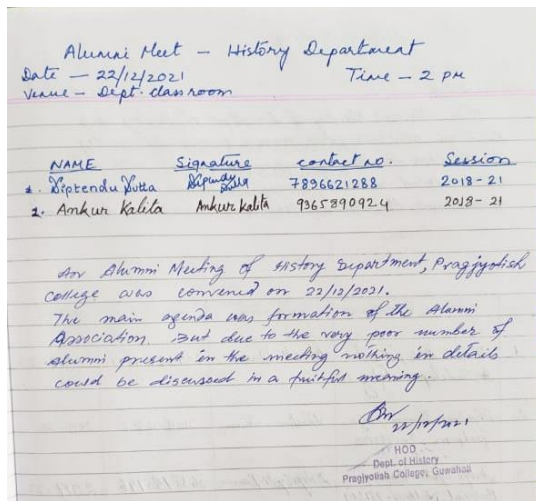 Alumni Meet - History Department
Date - 22/12/2021 Time - 2 PM
Venue - Dept. classroom
NAME Signature contact no. Session
1. Diptendu Dutta Dipendu Dutta 7896621288 2018-21
2. Ankur Kalita Ankur Kalita 9365890924 2018-21
An Alumni Meeting of History Department, Pragjyotish
College was convened on 22/12/2021.
The main agenda was formation of the Alumni
Association. But due to the very poor number of
alumni present in the meeting nothing in details
could be discussed in a fruitful meaning.
22/12/2021
HOD
Dept. of History
Pragjyotish College, Guwahati